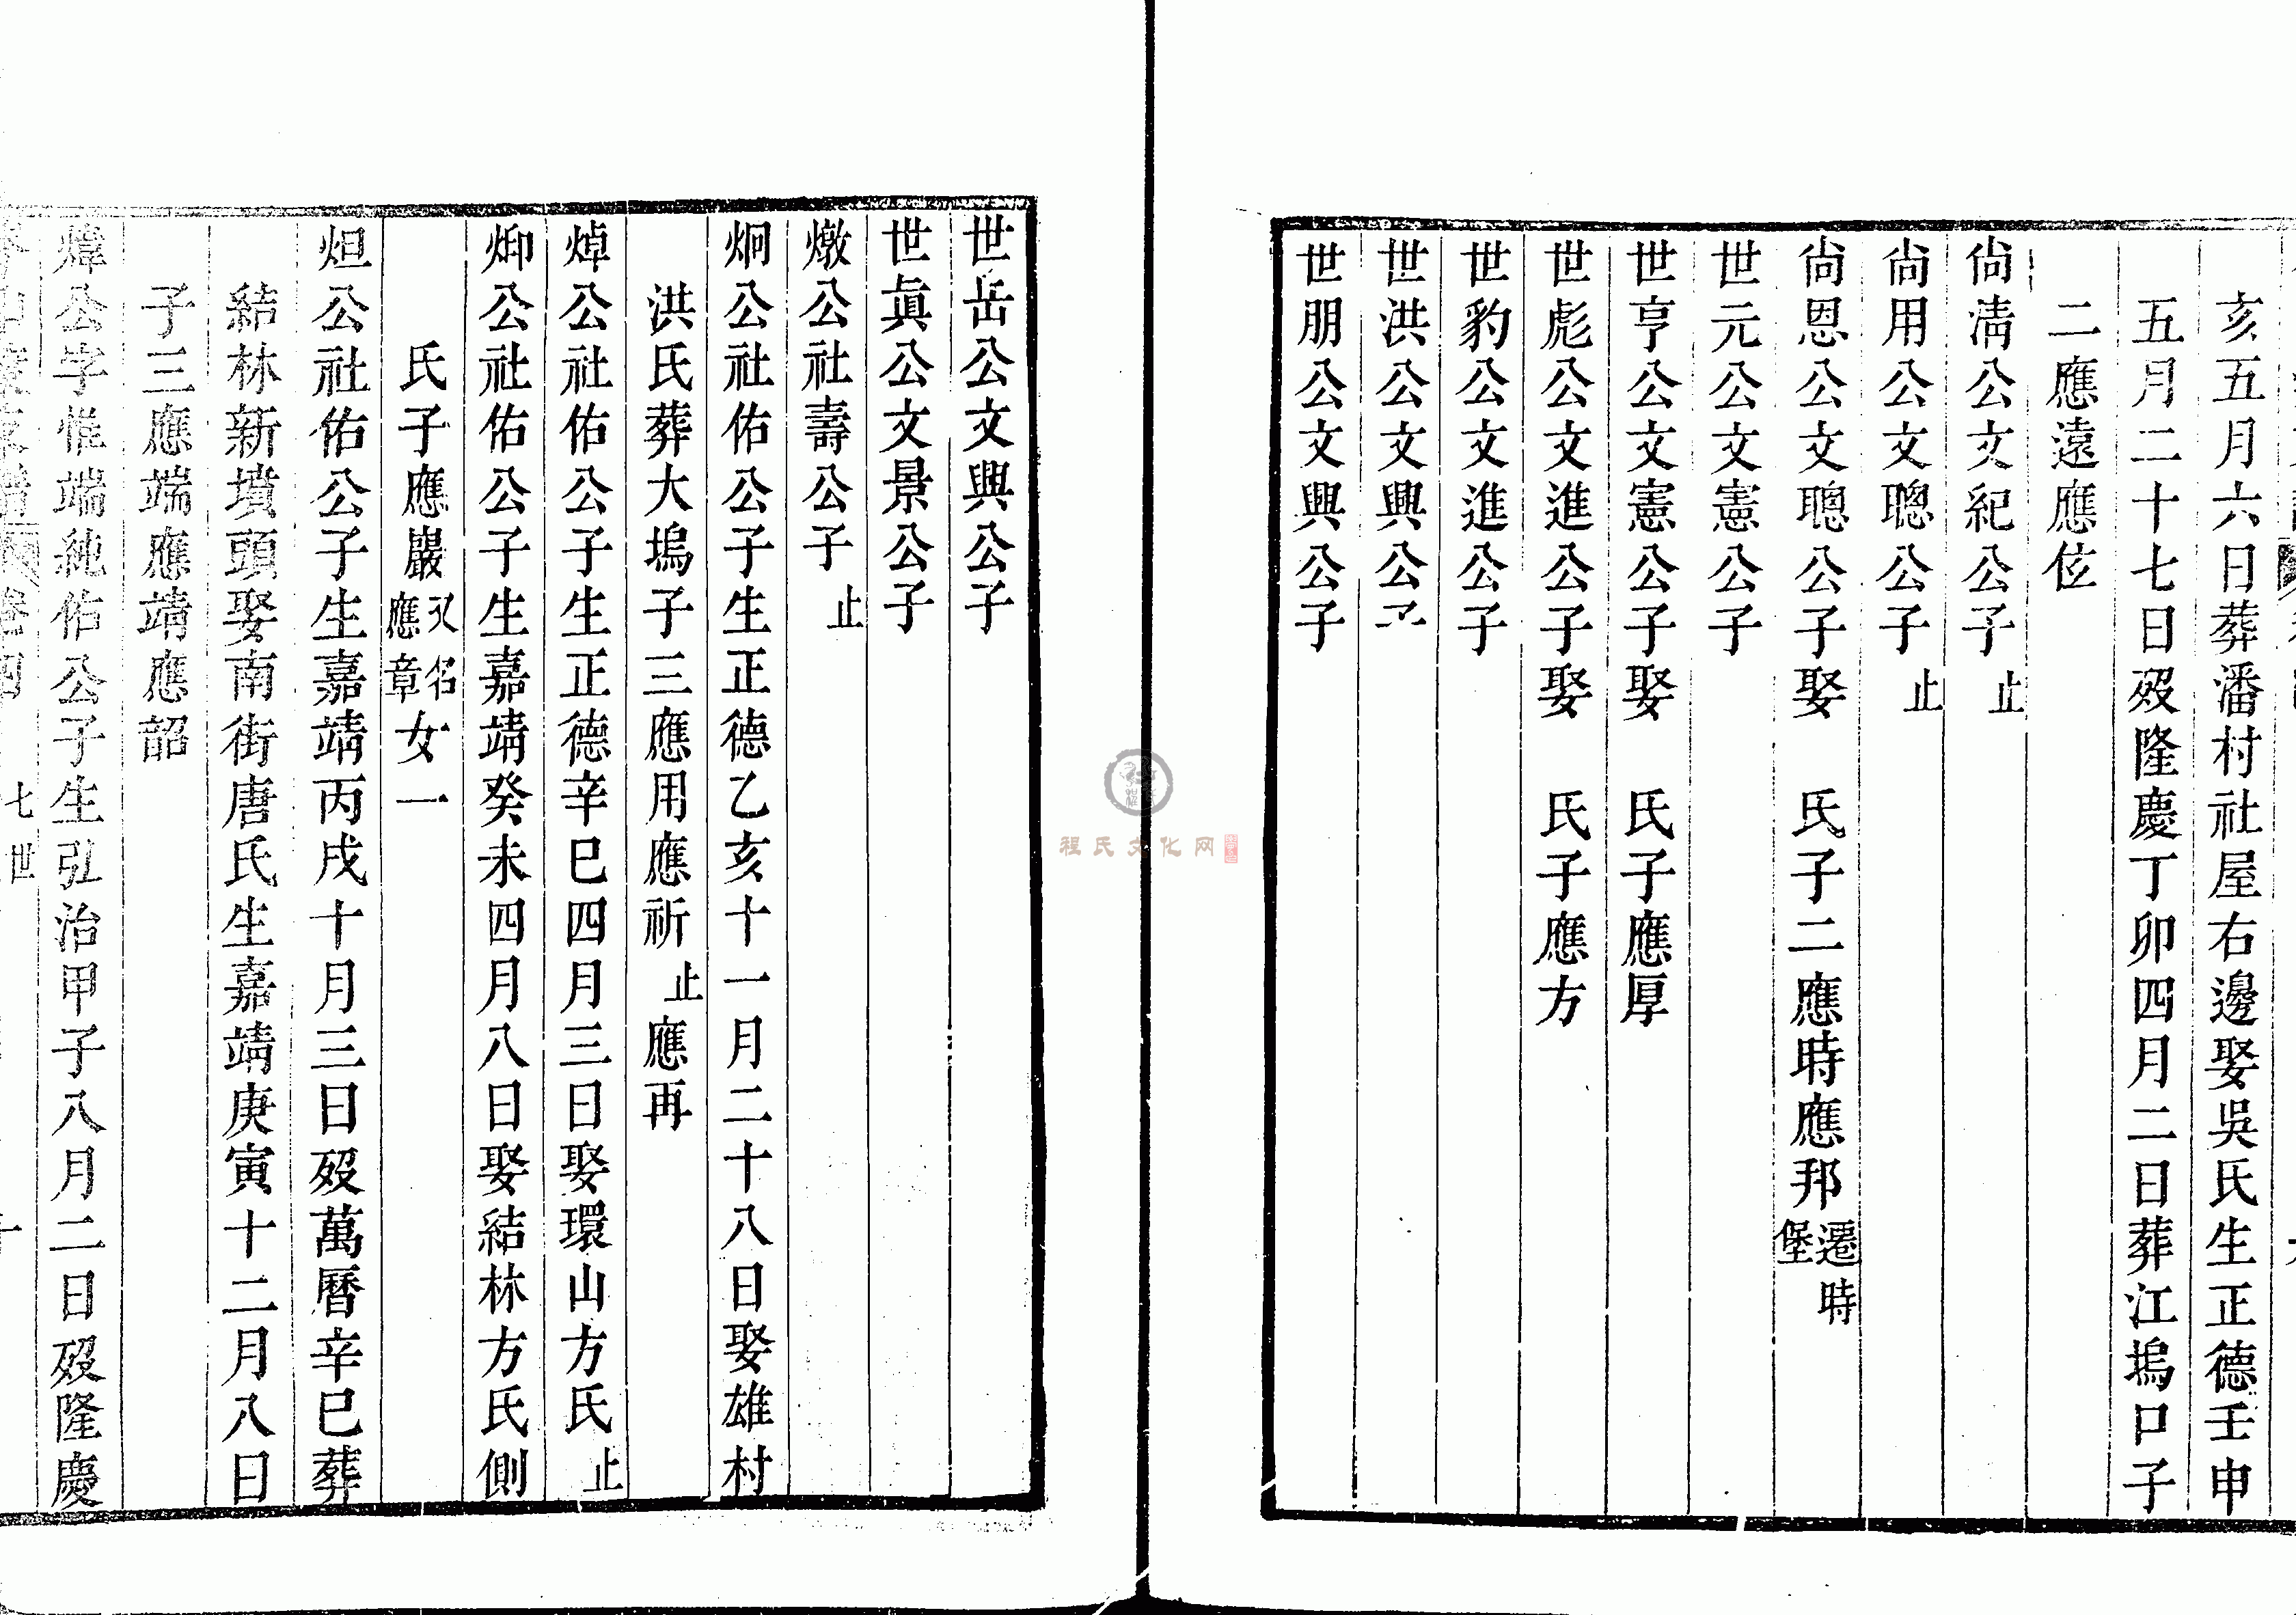 亥五月六日葬潘村社屋右邊娶吳氏生正德壬申
五月二十七日歿隆慶丁卯四月二日葬江塢口子
二應遠應伭
尙淸公文紀公子止
尙用公文聰公子止
尙恩公文聰公子娶　氏子二應時應邦遷時堡
世元公文憲公子
世亨公文憲公子娶　氏子應厚
世彪公文進公子娶　氏子應方
世豹公文進公子
世洪公文興公子
世朋公文興公子
世岳公文興公子
世眞公文景公子
燉公社壽公子止
炯公社佑公子生正德乙亥十一月二十八日娶雄村
洪氏葬大塢子三應用應祈止應再
焯公社佑公子生正德辛巳四月三日娶環山方氏止
公社佑公子生嘉靖癸未四月八日娶結林方氏側
氏子應巖又名應章女一
炟公社佑公子生嘉靖丙戌十月三日歿萬曆辛巳葬
結林新墳頭娶南街唐氏生嘉靖庚寅十二月八日
子三應端應靖應韶
煒公字惟端純佑公子生弘治甲子八月二日歿隆慶
卷四　七世
程氏文化网